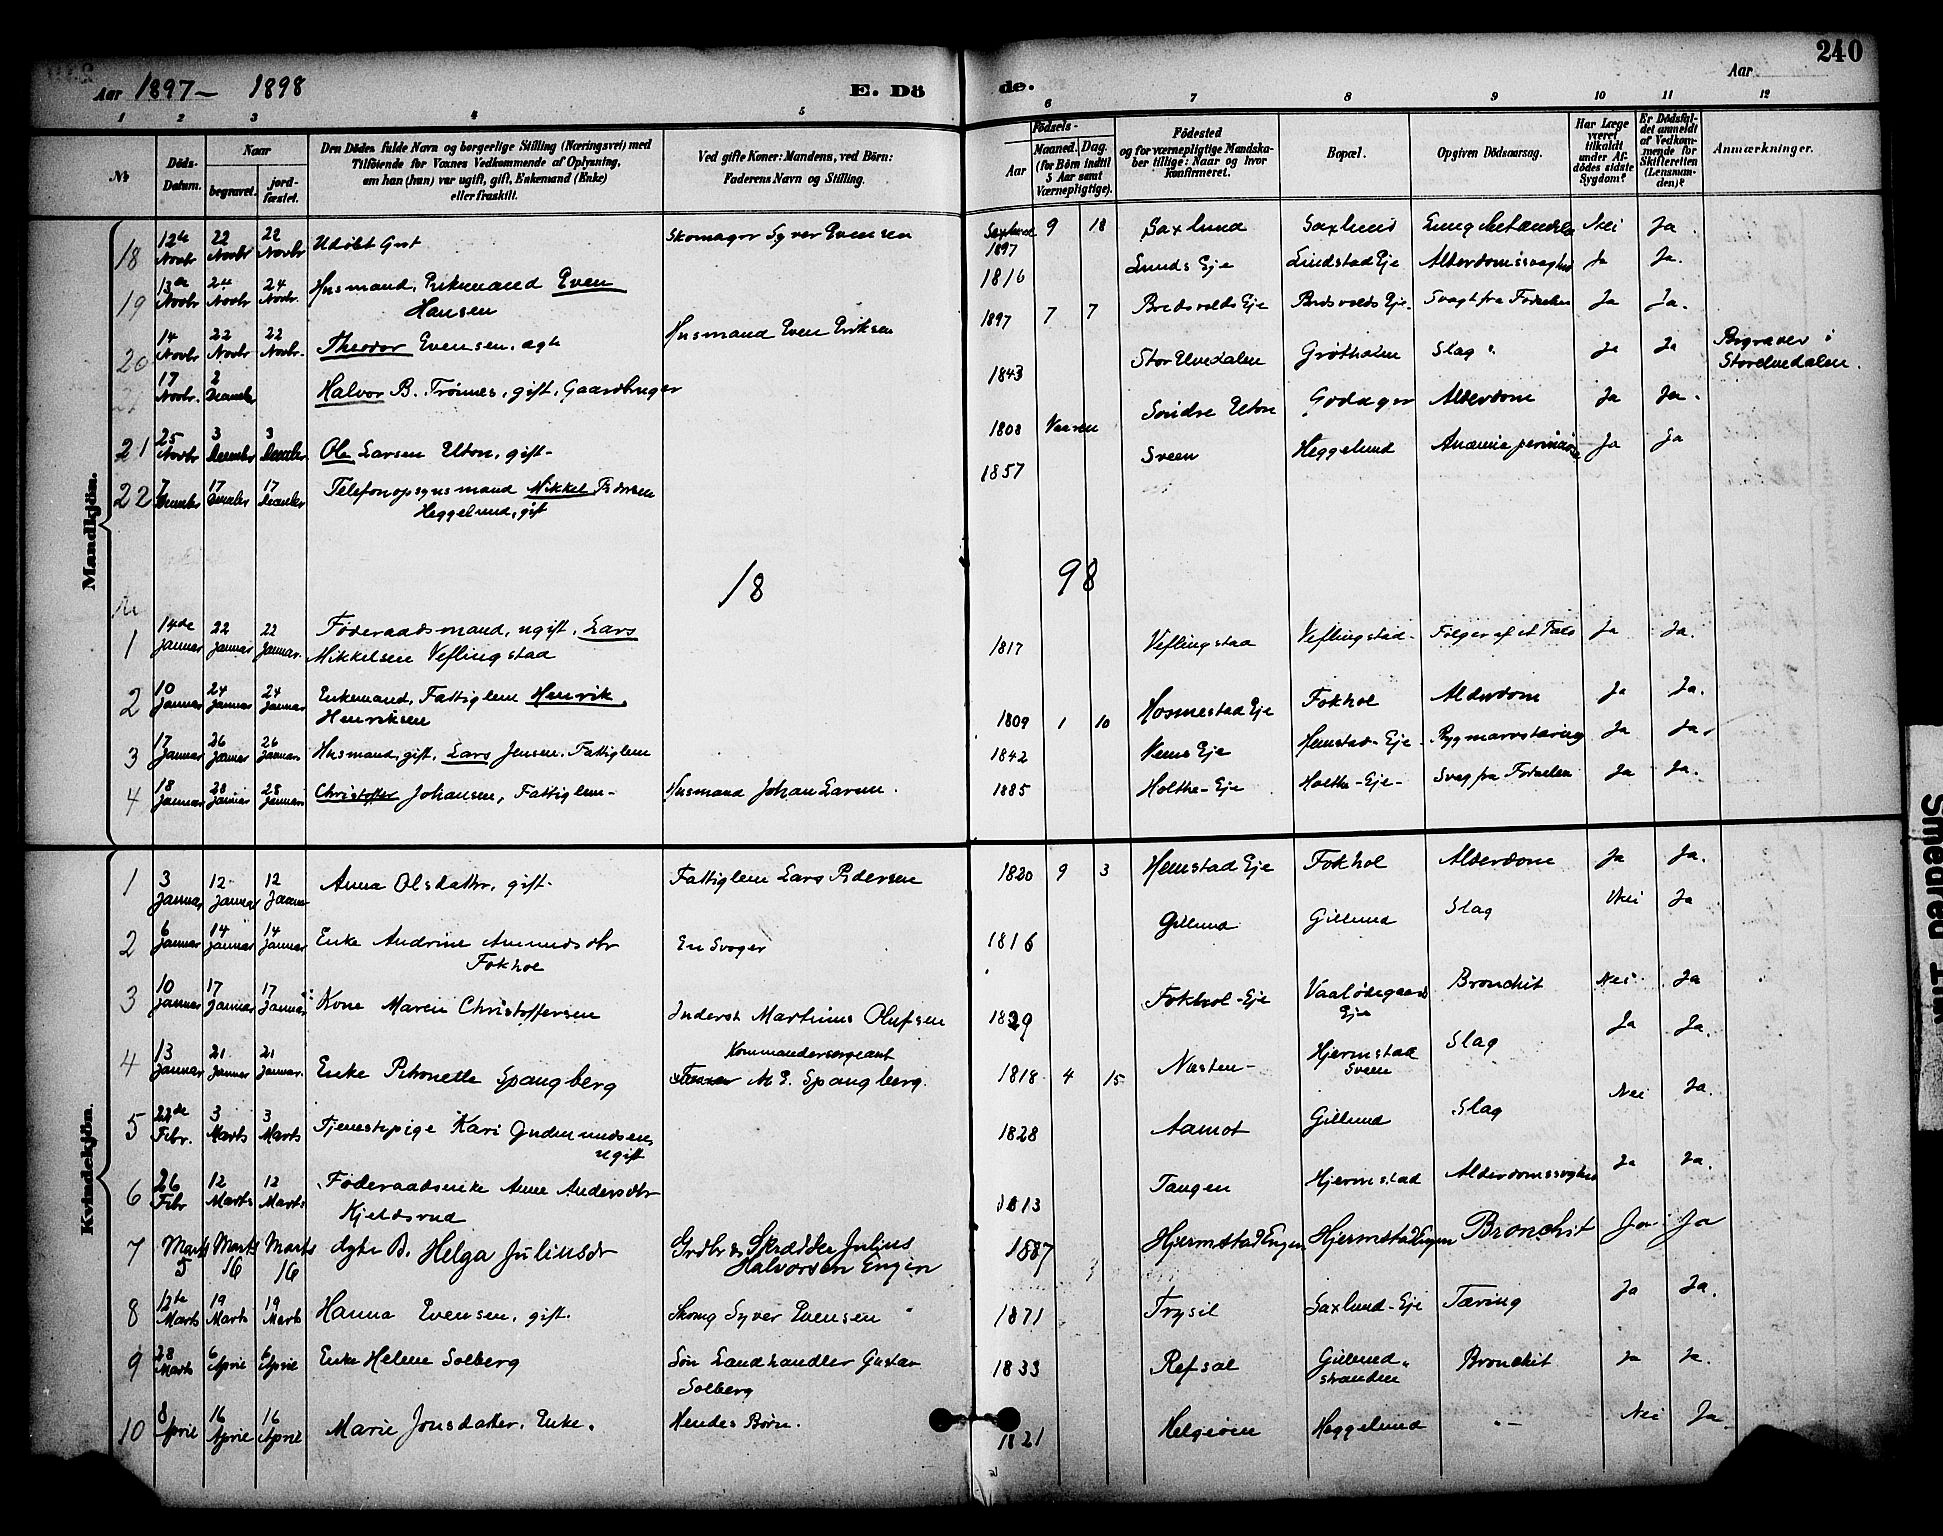 240
Aar 1897 – 1898 E. Dö de. Aar
1 2 3 4 5 6 7 8 9 10 11 12
№
Döds-Datum.
Naar
begravet. jordfæstet.
Den Dödes fulde Navn og borgerlige Stilling (Næringsvei) med
Tilföiende for Voxnes Vedkommende af Oplysning,
om han (hun) var ugift, gift, Enkemand (Enke)
eller fraskilt.
Ved gifte Koner: Mandens, ved Börn:
Faderens Navn og Stilling.
Födsels-
Aar
Maaned. Dag.
(for Börn indtil
5 Aar samt
Værnepligtige).
Födested
og for værnepligtige Mandska-
ber tillige: Naar og hvor
Konfirmeret.
Bopæl.
Opgiven Dödsaarsag.
Har Læge
været
tilkaldt
under Af-
dödes sidste
Sygdom?
Er Dödsfal-
det anmeldt
af Vedkom-
mende for
Skifteretten
(Lensman-
den)?
Anmærkninger.
Mandkjön.
18 12te Novbr 22 Novbr 22 Novbr Udöbt Gut Skomager Syver Evensen 1897 9 18 Saxlund Saxlund Nei Ja
19 13de Novbr 24 Novbr 24 Novbr. Husmand, Enkemand Even Hansen 1816 Lunds Eje Lindstad Eje Alderdomssvaghed Ja Ja.
20 14 Novbr 22 Novbr 22 Novbr. Theodor Evensen, ægte Husmand Even Eriksen 1897 7 7 Bredvolds Eje Bredsvolds Eje. Svag fra Fødselen Ja Ja.
21 17 Novbr. 2 December Halvor B. Trönnes, gift, Gaardbruger 1843 Stor Elvedalen Grøtholm Slag Ja Ja Begraves i Storelvedalen.
21 25 Novbr 3 December 3 December Ole Larsen Uton, gift – 1808 Vaaren Söndre Uton Godager Alderdom Ja Ja.
22 7 December 17 December 17 December Telefonopsynsmand Mikkel Pedersen Heggelund, gift 1857 Sveen Heggelund Anæmia perniciosa Ja Ja
18 98
1 14de Januar 22 Januar 22 Januar. Föderaadsmand, ugift, Lars Mikkelsen Veflingstad 1817 Veflingstad Veflingstad – Følger af et Fald Ja Ja.
2 10 Januar 24 Januar 24 Januar Enkemand, Fattiglem Henrik Henriksen 1809 1 10 Hosmestad Eje Fokhol Alderdom Ja Ja.
3 17 Januar 26 Januar 26 Januar Husmand, gift, Lars Jensen. Fattiglem 1842 Nems Eje Hemstad – Eje. Rygmarvstæring Ja Ja.
4 18 Januar 28 Januar 28 Januar Christoffer Johansen, Fattiglem – Husmand Johan Larsen. 1885 Holthe – Eje Holthe – Eje – Svag fra Fødselen Ja Ja.
Kvindekjön.
1 3 Januar 12 Januar 12 Januar Anna Olsdatter, gift – Fattiglem Lars Pedersen 1820 9 3 Hemstad Eje Fokhol Alderdom Ja Ja.
2 6 Januar 14 Januar 14 Januar Enke Andrine Amundsdtr Fokhol En Svoger 1816 Gillund Gillund Slag Nei Ja
3 10 Januar 17 Januar 17 Januar Kone Maren Christoffersen Inderst Martinus Olufsen 1829 Fokhol – Eje Vaalödegaards Eje Bronchit Nei Ja
4 13 Januar 21 Januar 21 Januar. Enke Petronelle Spangberg Kommandersergeant M. E. Spangberg. 1818 4 15 Næsten – Hjermstad Sveen Slag Ja Ja.
5 22de Febr. 3 Marts 3 Marts Tjenestepige Kari Gudmundsen, ugift 1828 Aamot Gillund Slag Nei Ja.
6 26 Febr 12 Marts 12 Marts Föderaadsenke Anne Andersdtr Kjeldsrud 1813 Tangen Hjermstad Alderdomssvaghed Ja Ja.
7 Marts 5 Marts 16 Marts 16 ægte B. Helga Juliusdr Grdbr og Skrædder Julius Halvorsen Engen 1887 Hjermstadengen Hjermstadengen Bronchit Ja Ja
8 12te Marts 19 Marts 19 Marts Hanna Evensen, gift. Skomg Syver Evensen 1871 Trysil Saxlund – Eje Tæring Ja Ja.
9 28 Marts 6 April 6 April Enke Helene Solberg Søn Landhandler Gustav Solberg 1833 Refsal Gillundstranden Bronchit Ja Ja.
10 8 April 16 April 16 April Marie Jonsdatter, Enke. Hendes Børn. 1821 Helgeöen Heggelund „ – Nei Ja